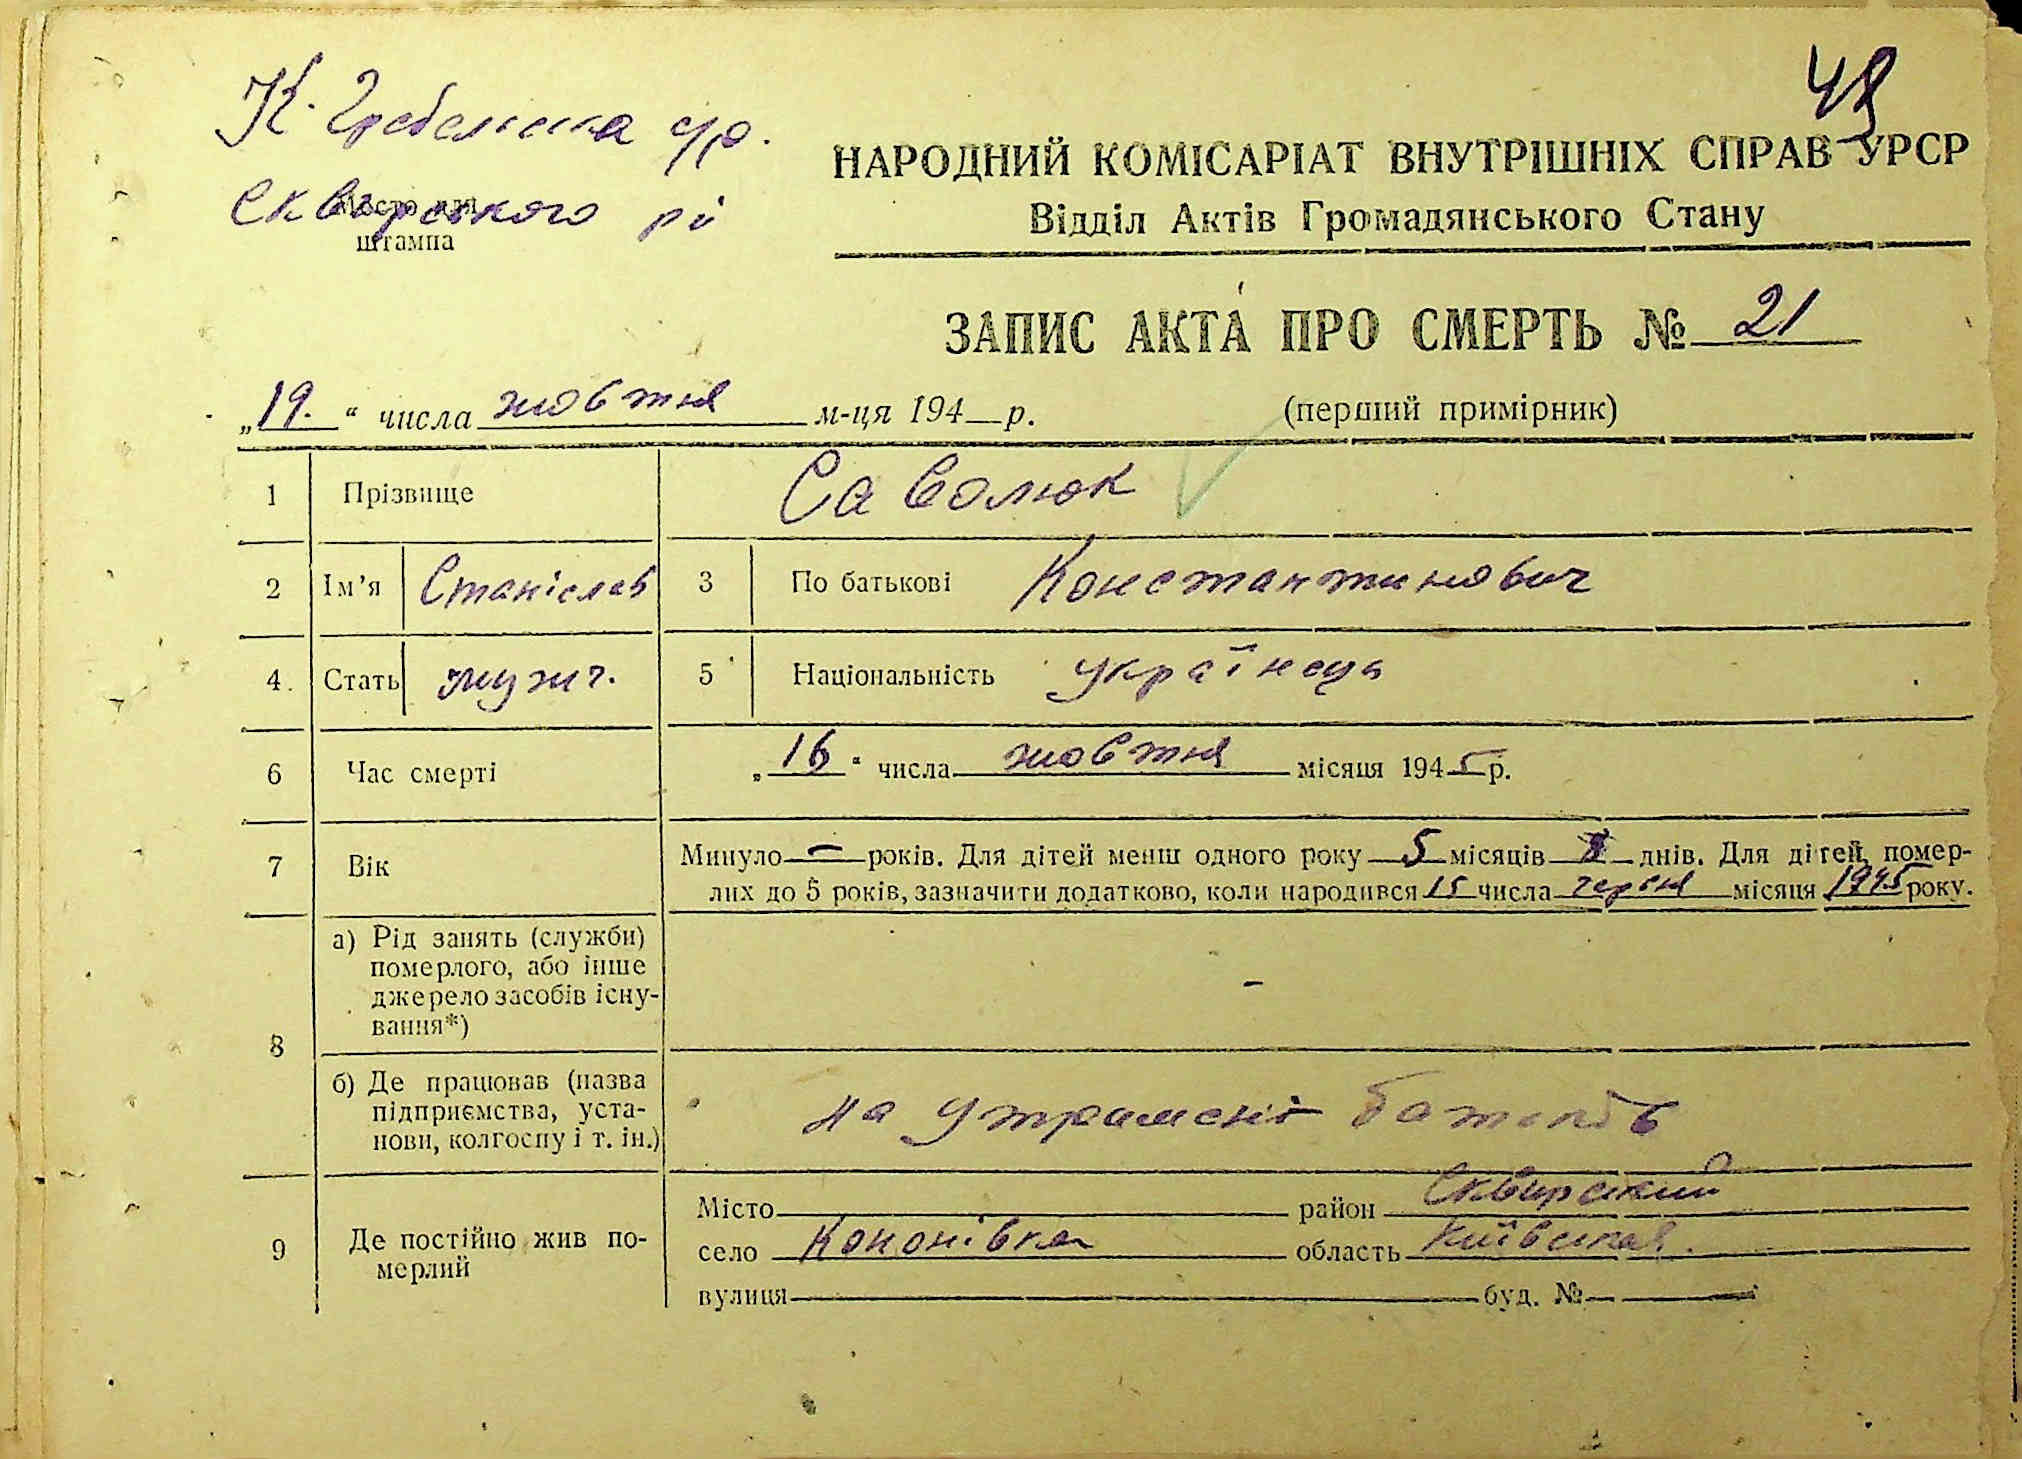 48
К. Гребельська с/р.
Сквирського р-й
Місце для
штампа
НАРОДНИЙ КОМІСАРІАТ ВНУТРІШНІХ СПРАВ УРСР
Відділ Актів Громадянського Стану
ЗАПИС АКТА ПРО СМЕРТЬ № 21
„19.“ числа жовтня м-ця 194 р. (перший примірник)
1 Прізвище Саволюк
2 Ім'я Станіслав 3 По батькові Константинович
4. Стать мужч. 5 Національність українець
6 Час смерті „16“ числа жовтня місяця 1945 р.
7 Вік Минуло — років. Для дітей менш одного року 5 місяців днів. Для дітей, помер-
лих до 5 років, зазначити додатково, коли народився 15 числа червня місяця 1945 року.
8 а) Рід занять (служби)
померлого, або інше
джерело засобів існу-
вання*) -
б) Де працював (назва
підприємства, уста-
нови, колгоспу і т. ін.) на утримені батьків
9 Де постійно жив по-
мерлий
Місто район Сквирський
село Кононівка область Київська.
вулиця буд. №